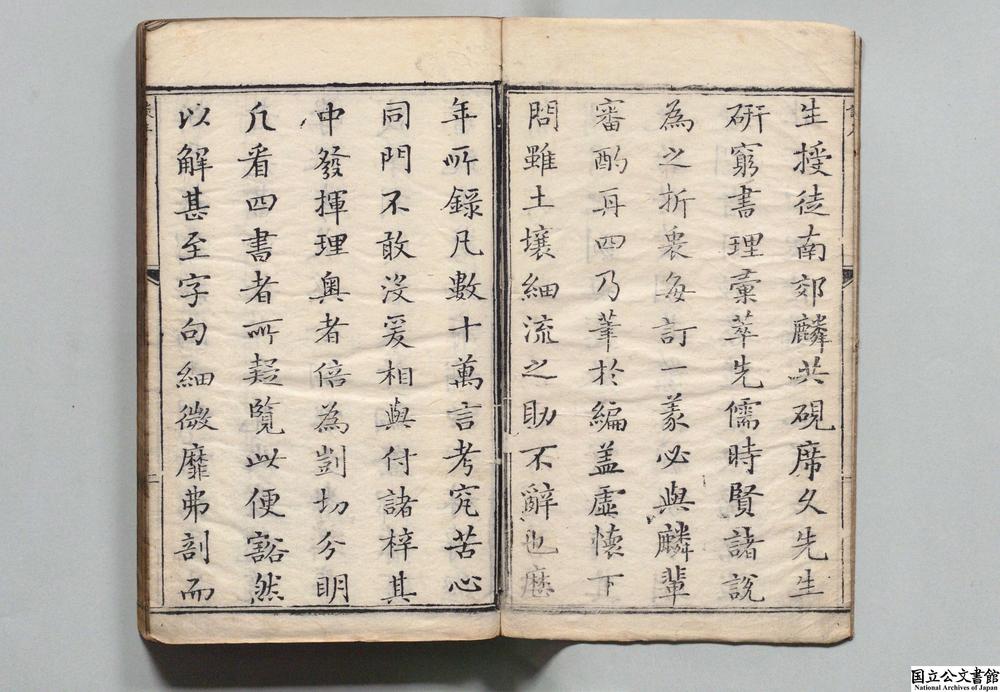 生授徒南郊麟共硯席久先生
研窮書理彙萃先儒時賢諸說
為之折衷每訂一義必與麟輩
審酌再四乃筆於編盖虛懷下
問雖土壤細流之助不辭也歷
年所錄凡數十萬言考究苦心
同門不敢沒爰相與付諸梓其
中發揮理奧者倍為剴切分明
凢看四書者所疑覽此便豁然
以解甚至字句細微靡弗剖而
国立公文書館
National Archives of Japan